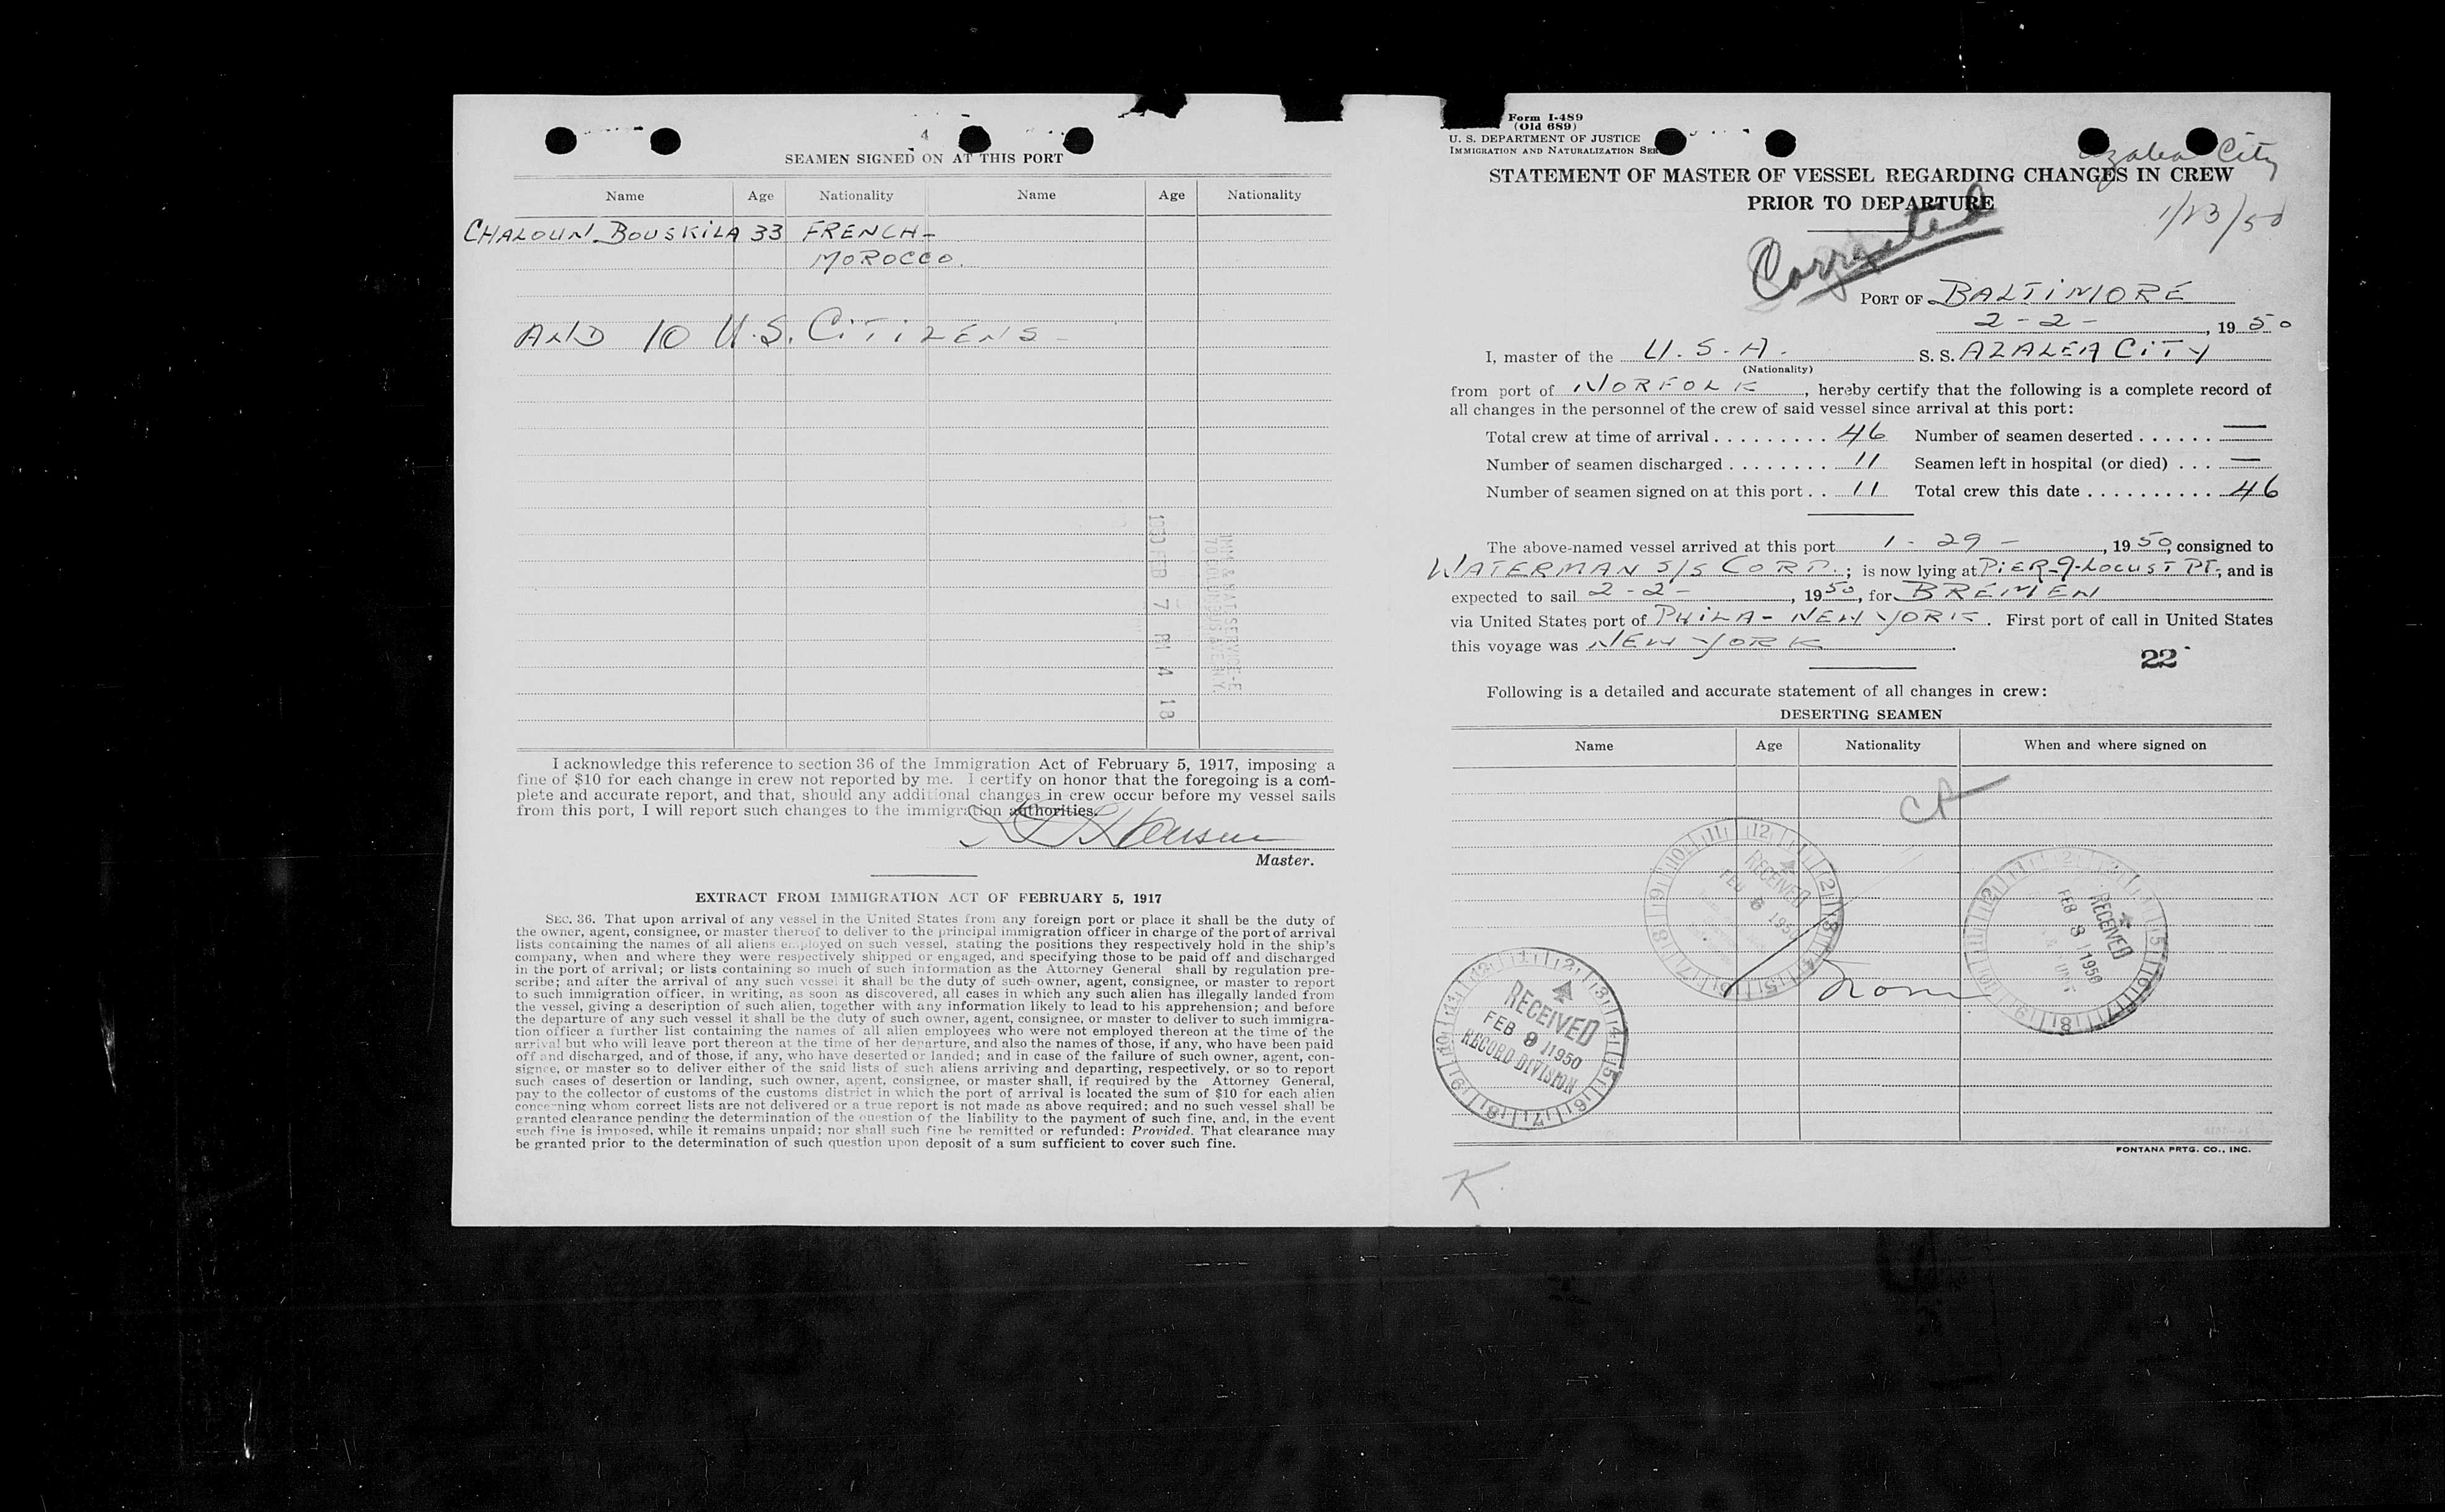 4
SEAMEN SIGNED ON AT THIS PORT
Name Age Nationality Name Age Nationality
CHALOUN BOUSKILA 33 FRENCH-
MOROCCO.
AND 10 U.S. CITIZENS -
1950 FEB 7 PM 4 18
IMM & NAT SERVICE-E
70 COLUMBUS AVE N.Y.
I acknowledge this reference to section 36 of the Immigration Act of February 5, 1917, imposing a
fine of $10 for each change in crew not reported by me. I certify on honor that the foregoing is a com-
plete and accurate report, and that, should any additional changes in crew occur before my vessel sails
from this port, I will report such changes to the immigration authorities.
Master.
EXTRACT FROM IMMIGRATION ACT OF FEBRUARY 5, 1917
SEC. 36. That upon arrival of any vessel in the United States from any foreign port or place it shall be the duty of
the owner, agent, consignee, or master thereof to deliver to the principal immigration officer in charge of the port of arrival
lists containing the names of all aliens employed on such vessel, stating the positions they respectively hold in the ship's
company, when and where they were respectively shipped or engaged, and specifying those to be paid off and discharged
in the port of arrival; or lists containing so much of such information as the Attorney General shall by regulation pre-
scribe; and after the arrival of any such vessel it shall be the duty of such owner, agent, consignee, or master to report
to such immigration officer, in writing, as soon as discovered, all cases in which any such alien has illegally landed from
the vessel, giving a description of such alien, together with any information likely to lead to his apprehension; and before
the departure of any such vessel it shall be the duty of such owner, agent, consignee, or master to deliver to such immigra-
tion officer a further list containing the names of all alien employees who were not employed thereon at the time of the
arrival but who will leave port thereon at the time of her departure, and also the names of those, if any, who have been paid
off and discharged, and of those, if any, who have deserted or landed; and in case of the failure of such owner, agent, con-
signee, or master so to deliver either of the said lists of such aliens arriving and departing, respectively, or so to report
such cases of desertion or landing, such owner, agent, consignee, or master shall, if required by the Attorney General,
pay to the collector of customs of the customs district in which the port of arrival is located the sum of $10 for each alien
concerning whom correct lists are not delivered or a true report is not made as above required; and no such vessel shall be
granted clearance pending the determination of the question of the liability to the payment of such fine, and, in the event
such fine is imposed, while it remains unpaid; nor shall such fine be remitted or refunded: Provided. That clearance may
be granted prior to the determination of such question upon deposit of a sum sufficient to cover such fine.
Form I-489
(Old 689)
U. S. DEPARTMENT OF JUSTICE
IMMIGRATION AND NATURALIZATION SER
Azalea City
STATEMENT OF MASTER OF VESSEL REGARDING CHANGES IN CREW
PRIOR TO DEPARTURE
1/23/50
Corrected
PORT OF BALTIMORE
2-2-, 1950
I, master of the U.S.A. S. S. AZALEA CITY
(Nationality)
from port of NORFOLK, hereby certify that the following is a complete record of
all changes in the personnel of the crew of said vessel since arrival at this port:
Total crew at time of arrival . . . . . . . . . 46 Number of seamen deserted . . . . . . —
Number of seamen discharged . . . . . . . . 11 Seamen left in hospital (or died) . . . —
Number of seamen signed on at this port . . 11 Total crew this date . . . . . . . . . . 46
The above-named vessel arrived at this port 1-29-, 1950, consigned to
WATERMAN S/S CORP.; is now lying at PIER-9-LOCUST PT., and is
expected to sail 2-2-, 1950, for BREMEN
via United States port of PHILA- NEW YORK. First port of call in United States
this voyage was NEW YORK.
22
Following is a detailed and accurate statement of all changes in crew:
DESERTING SEAMEN
Name Age Nationality When and where signed on
CR
RECEIVED
FEB 6 1950
RECEIVED
FEB 8 1950
None
RECEIVED
FEB 9 1950
RECORD DIVISION
FONTANA PRTG. CO., INC.
K.